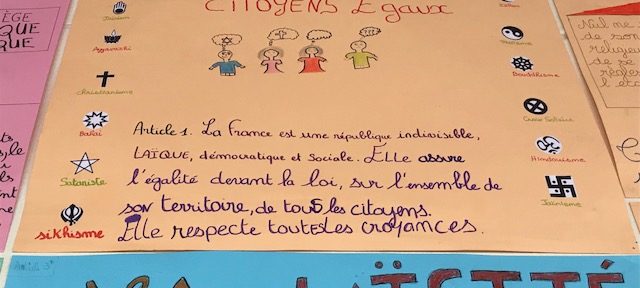 CITOYENS Égaux
Jaïnism
Ayyavazhi
christianisme
Bahaï
Sataniste
sikhisme
Article 1. La France est une république indivisible,
LAÏQUE, démocratique et sociale. Elle assure
l'égalité devant la loi, sur l'ensemble de
son territoire, de touS les citoyens.
Elle respecte toutes les croyances.
Taoïsme
Bouddhisme
Croix Solaire
Hindouisme
Jaïnisme
Nul ne
de son
religieu
de se